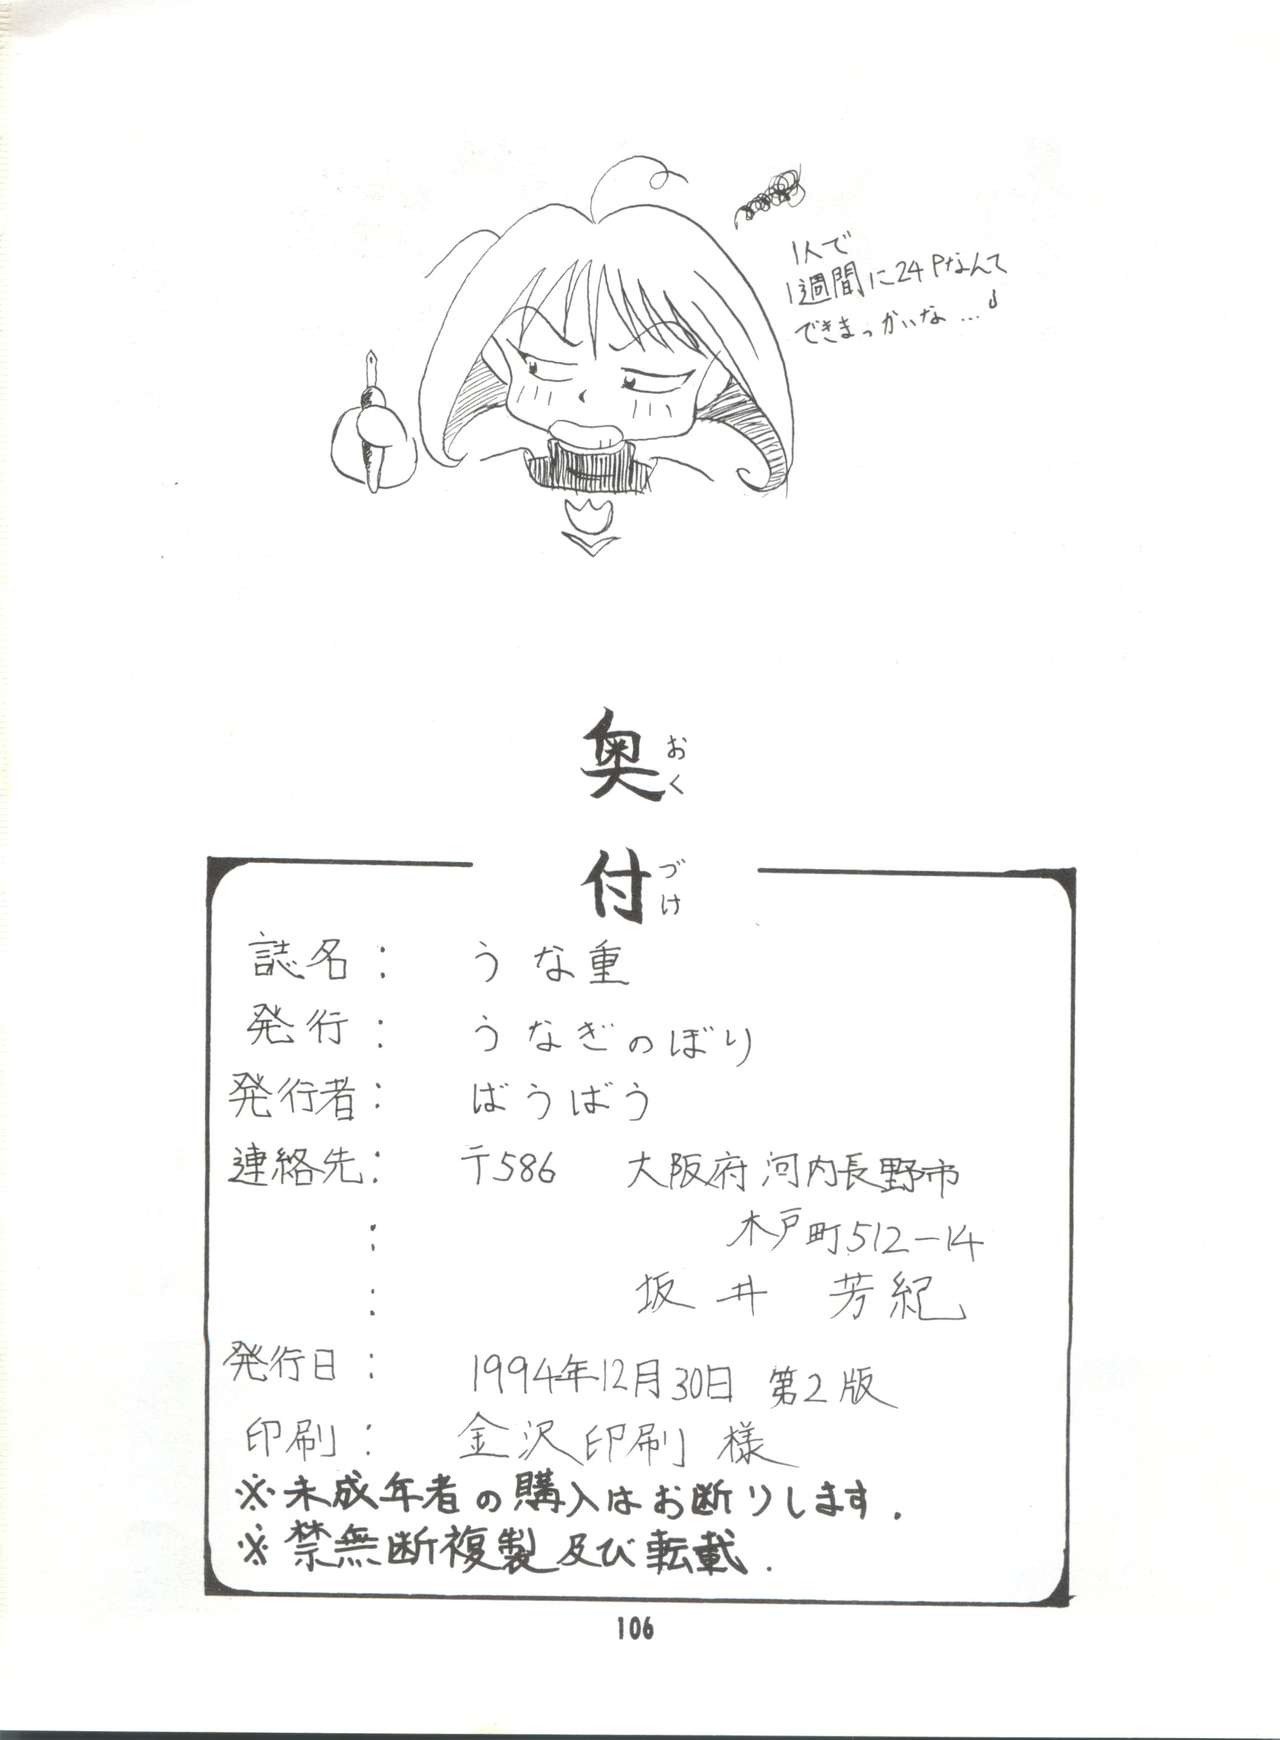 1人で
1週間に24Pなんて
できまっかいな…
奥付
おくづけ
誌名: うな重
発行: うなぎのぼり
発行者: ばうばう
連絡先: 〒586 大阪府河内長野市
: 木戸町512-14
: 坂井 芳紀
発行日: 1994年12月30日 第2版
印刷: 金沢印刷 様
※未成年者の購入はお断りします.
※禁無断複製及び転載.
106